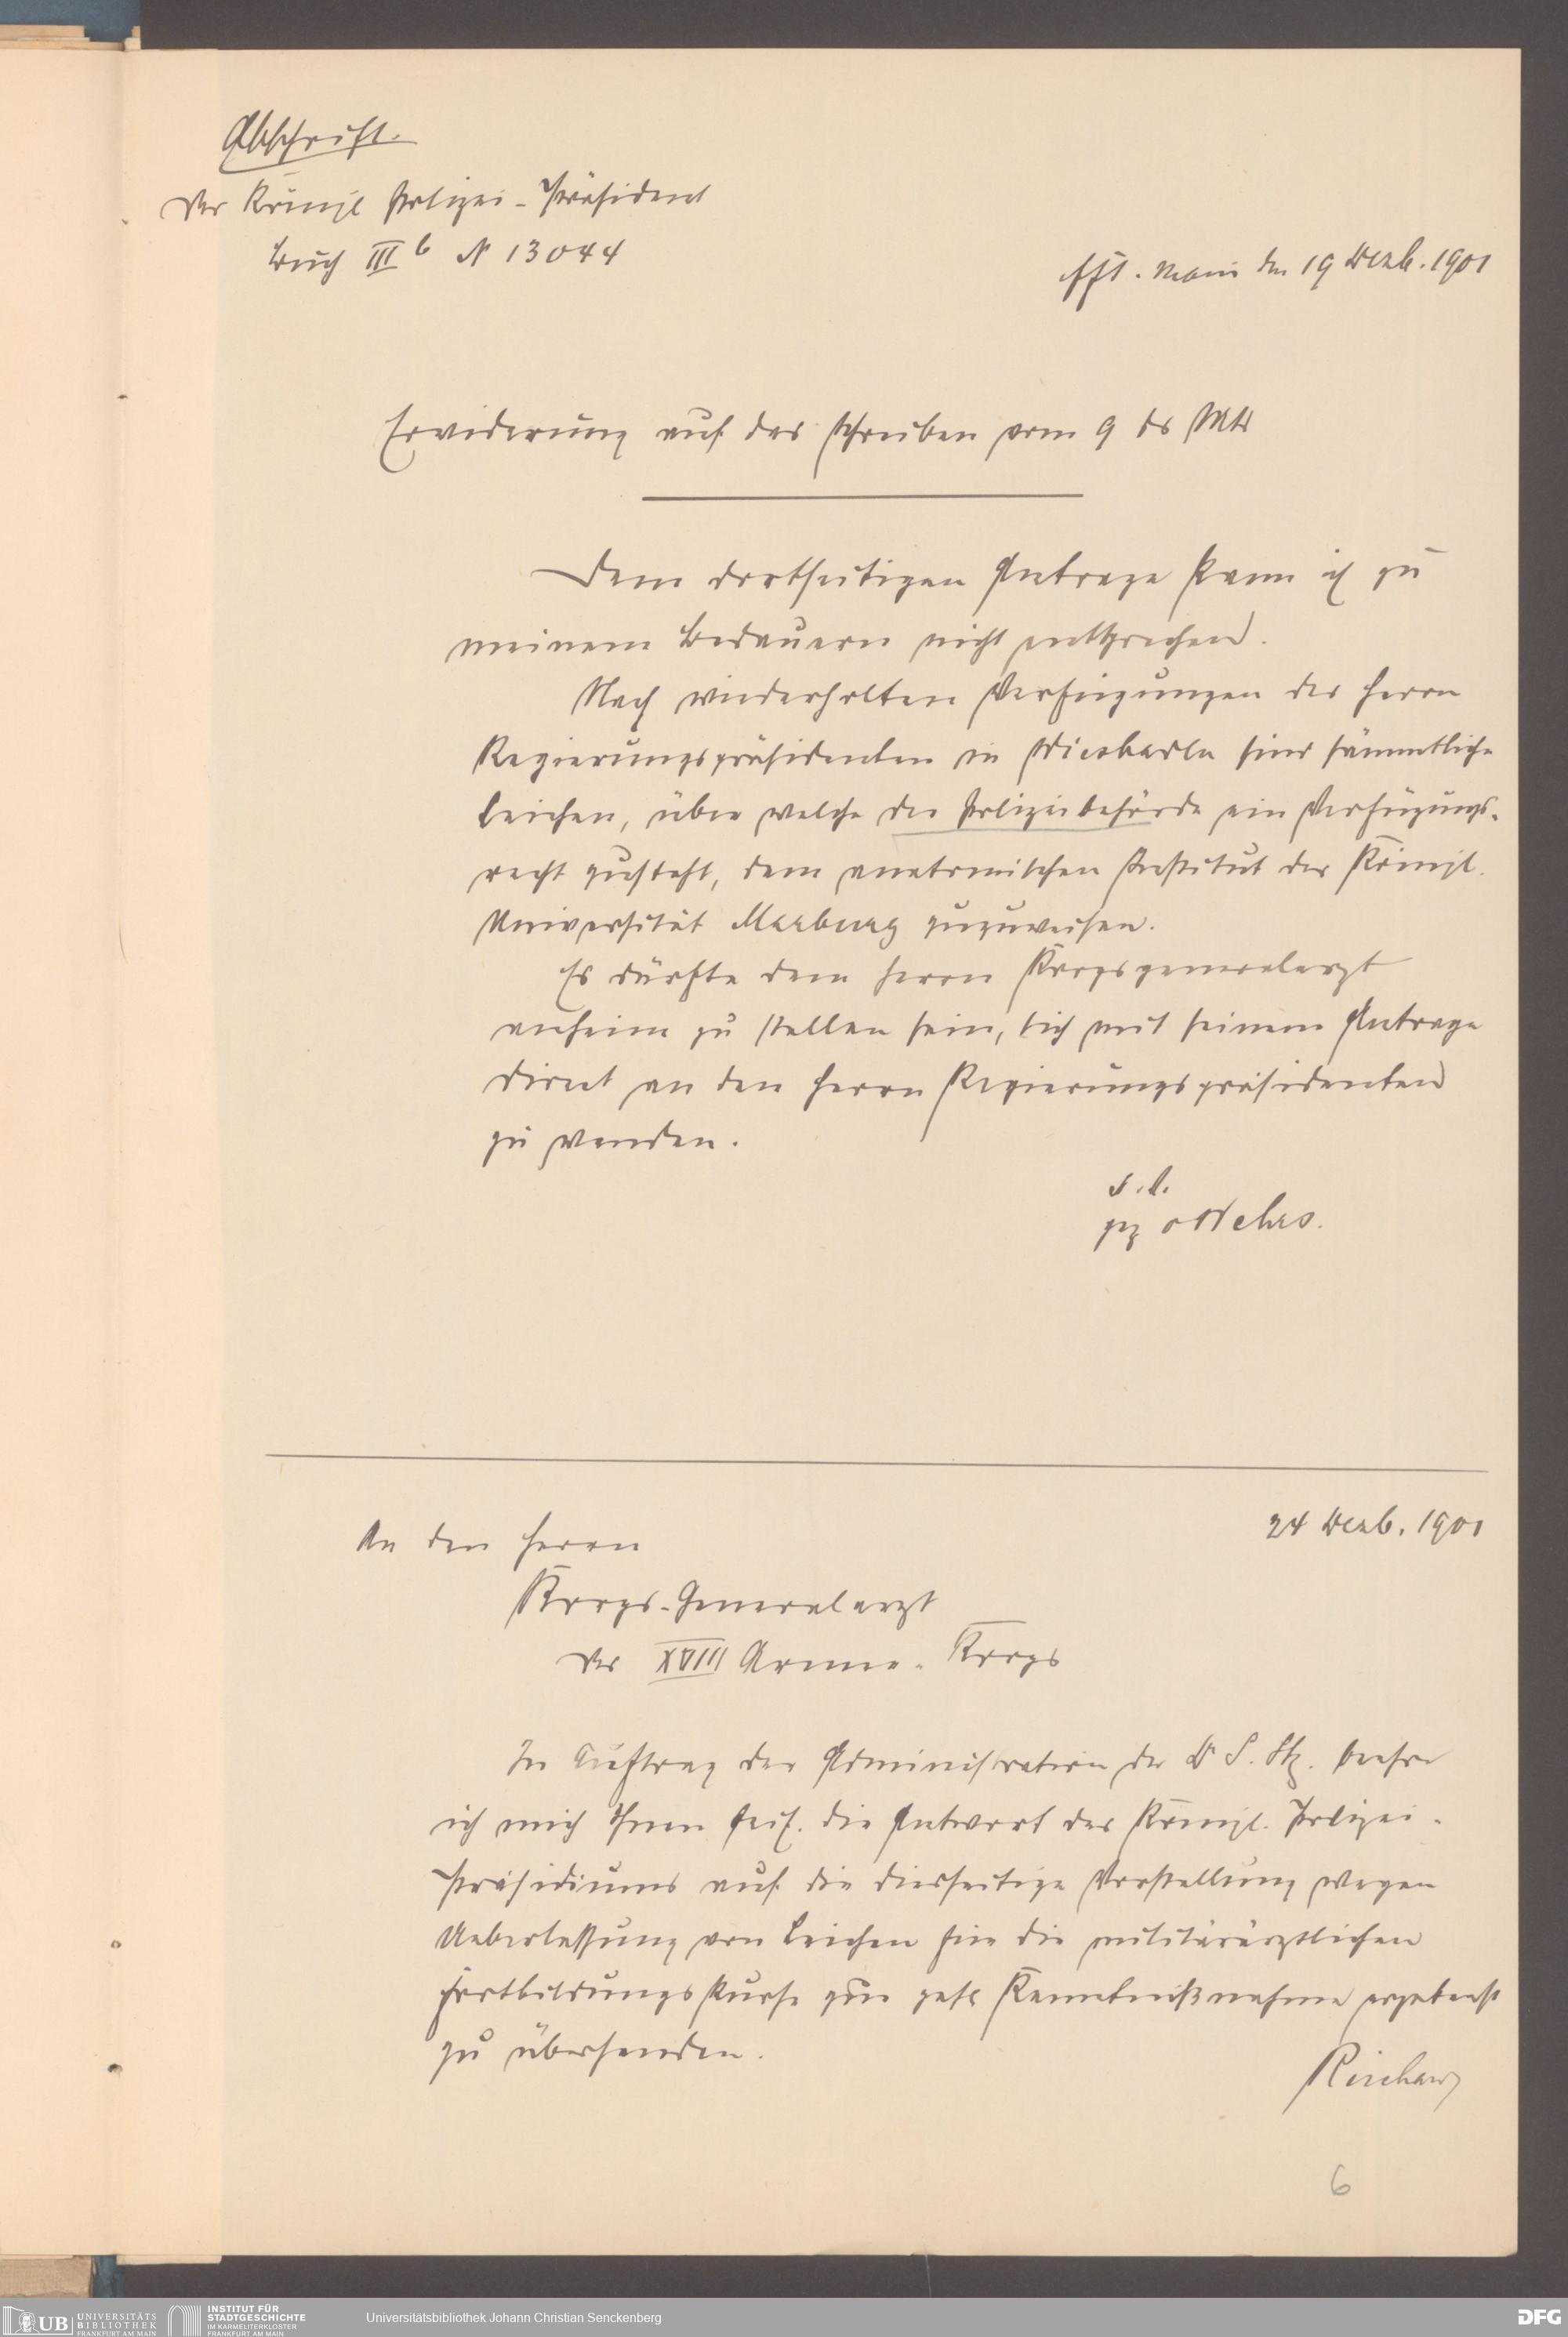 Abschrift.
Der Königl Polizei-Präsident
Buch III b N 13044
Fft. Main den 19 Dezb. 1901
Erwiderung auf das Schreiben vom 9 ds Mts
Dem dortseitigen Antrage kann ich zu
meinem Bedauern nicht entsprechen.
Nach wiederholten Verfügungen des Herrn
Regierungspräsidenten in Wiesbaden sind sämmtliche
Leichen, über welche der Polizeibehörde ein Verfügungs-
recht zusteht, dem anatomischen Institut der Königl.
Universität Marburg zuzuweisen.
Es dürfte dem Herrn Korpsgeneralarzt
anheim zu stellen sein, sich mit seinem Antrage
direct an den Herrn Regierungspräsidenten
zu wenden.
gez
24 Dezb. 1901
An den Herrn
Korps-Generalarzt
des XVIII Armee-Korps
Im Auftrag der Administration der Dr S. Stg. beehre
ich mich Ihnen die Antwort des Königl. Polizei-
Präsidiums auf die diesseitige Vorstellung wegen
Ueberlassung von Leichen für die militärärztlichen
Fortbildungskurse zur gefl Kenntnißnahme ergebenst
zu übersenden.
6
UB UNIVERSITÄTS
BIBLIOTHEK
FRANKFURT AM MAIN
INSTITUT FÜR
STADTGESCHICHTE
IM KARMELITERKLOSTER
FRANKFURT AM MAIN
Universitätsbibliothek Johann Christian Senckenberg
DFG